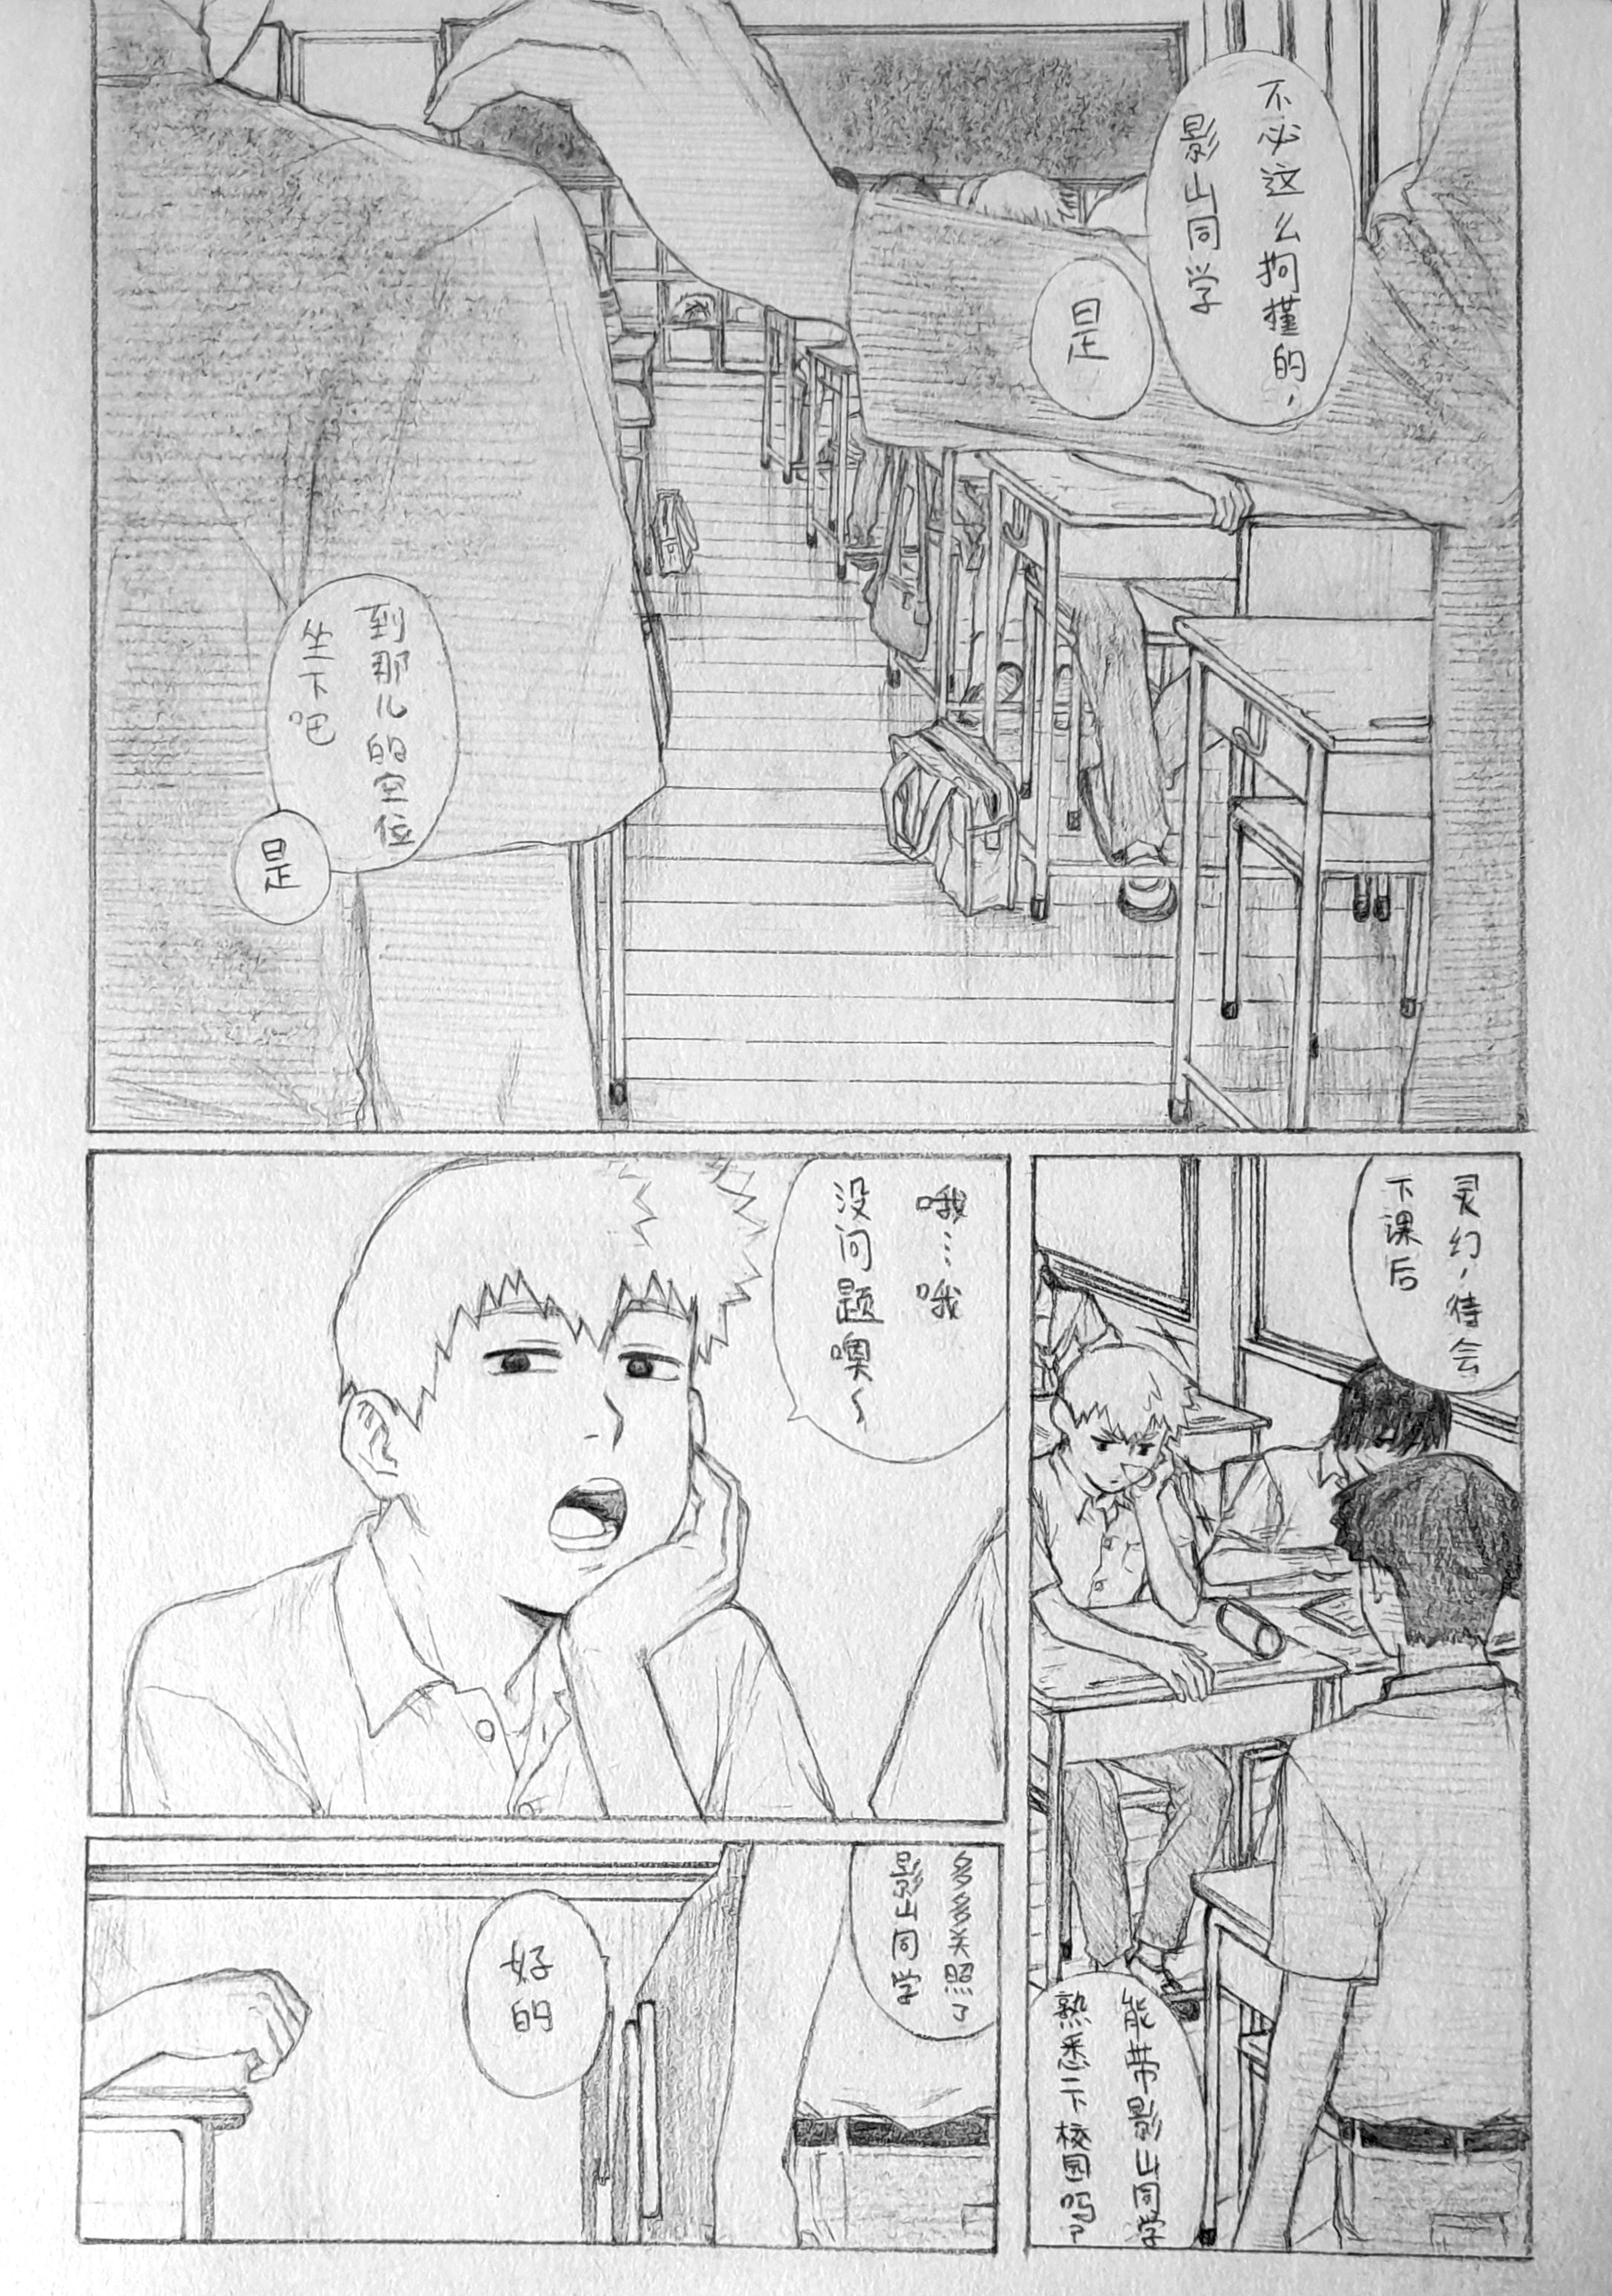 不必这么拘谨的，
影山同学
是
到那儿的空位
坐下吧
是
灵幻，待会
下课后
能带影山同学
熟悉一下校园吗？
哦…哦
没问题噢～
多多关照了
影山同学
好的